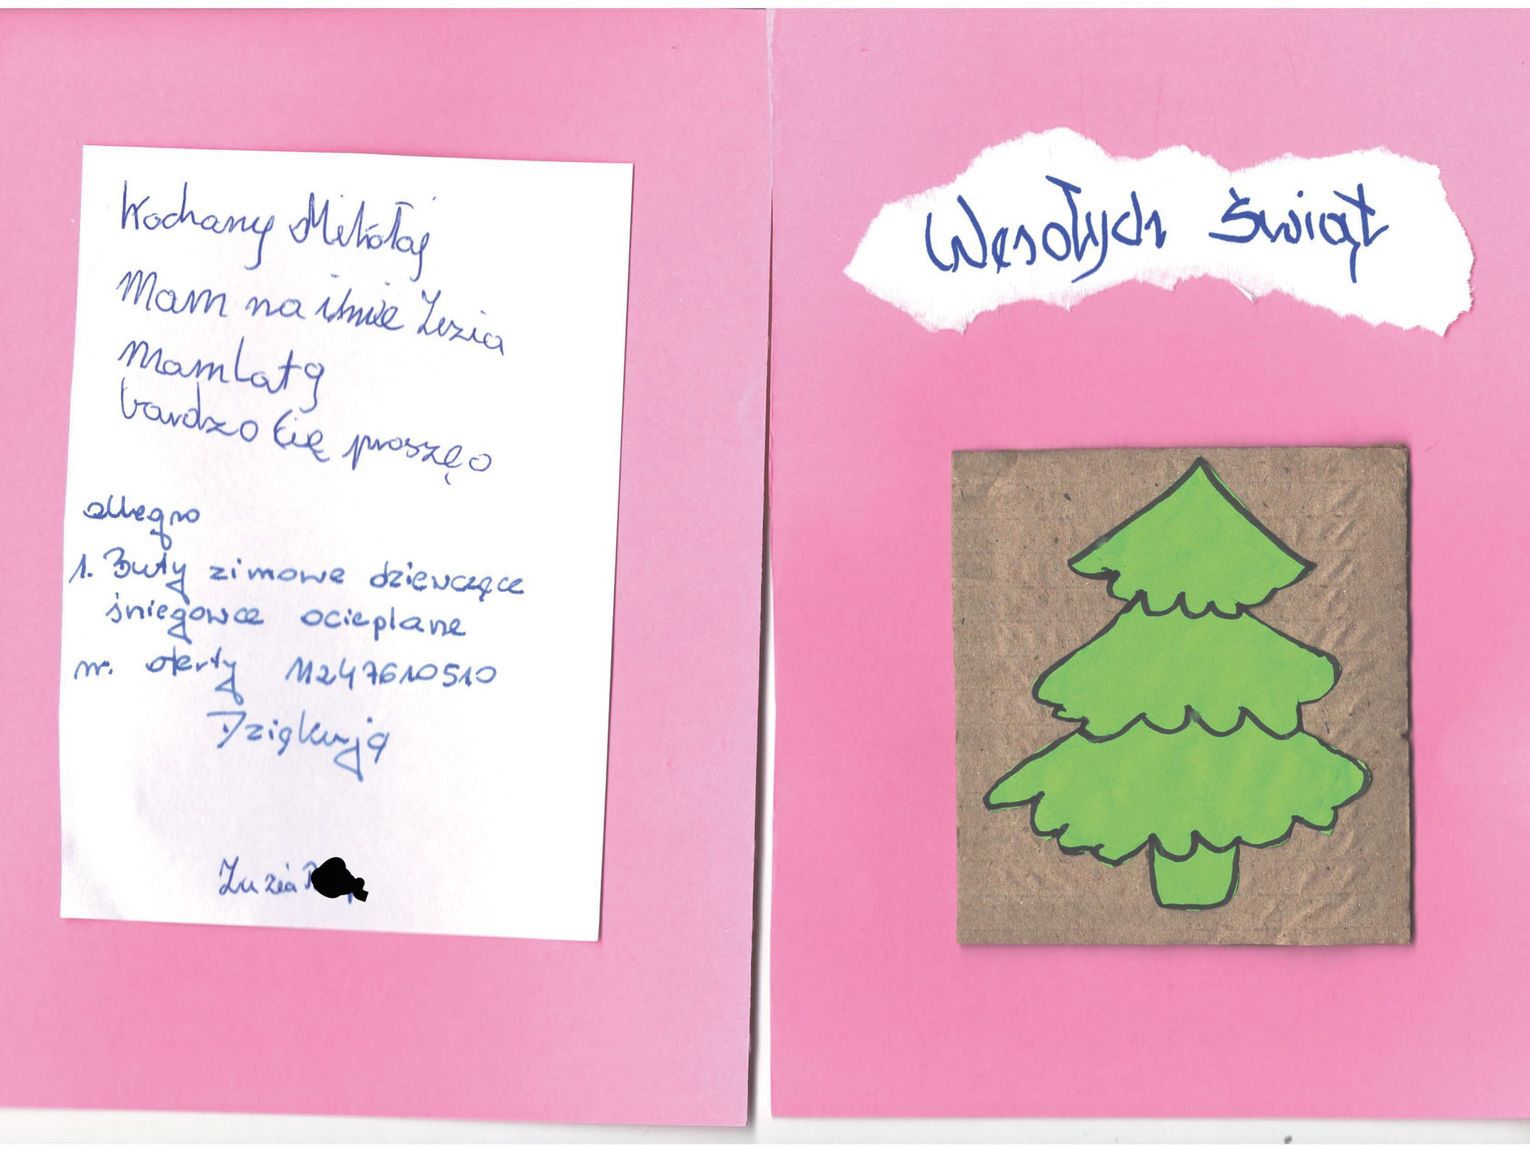 Kochany Mikołaj
Mam na imie Zuzia
Mam lat 9
bardzo Cię proszę o
allegro
1. Buty zimowe dziewczęce
śniegowce ocieplane
nr. oferty 11247610510
Dziękuję
Zuzia
Wesołych Świąt